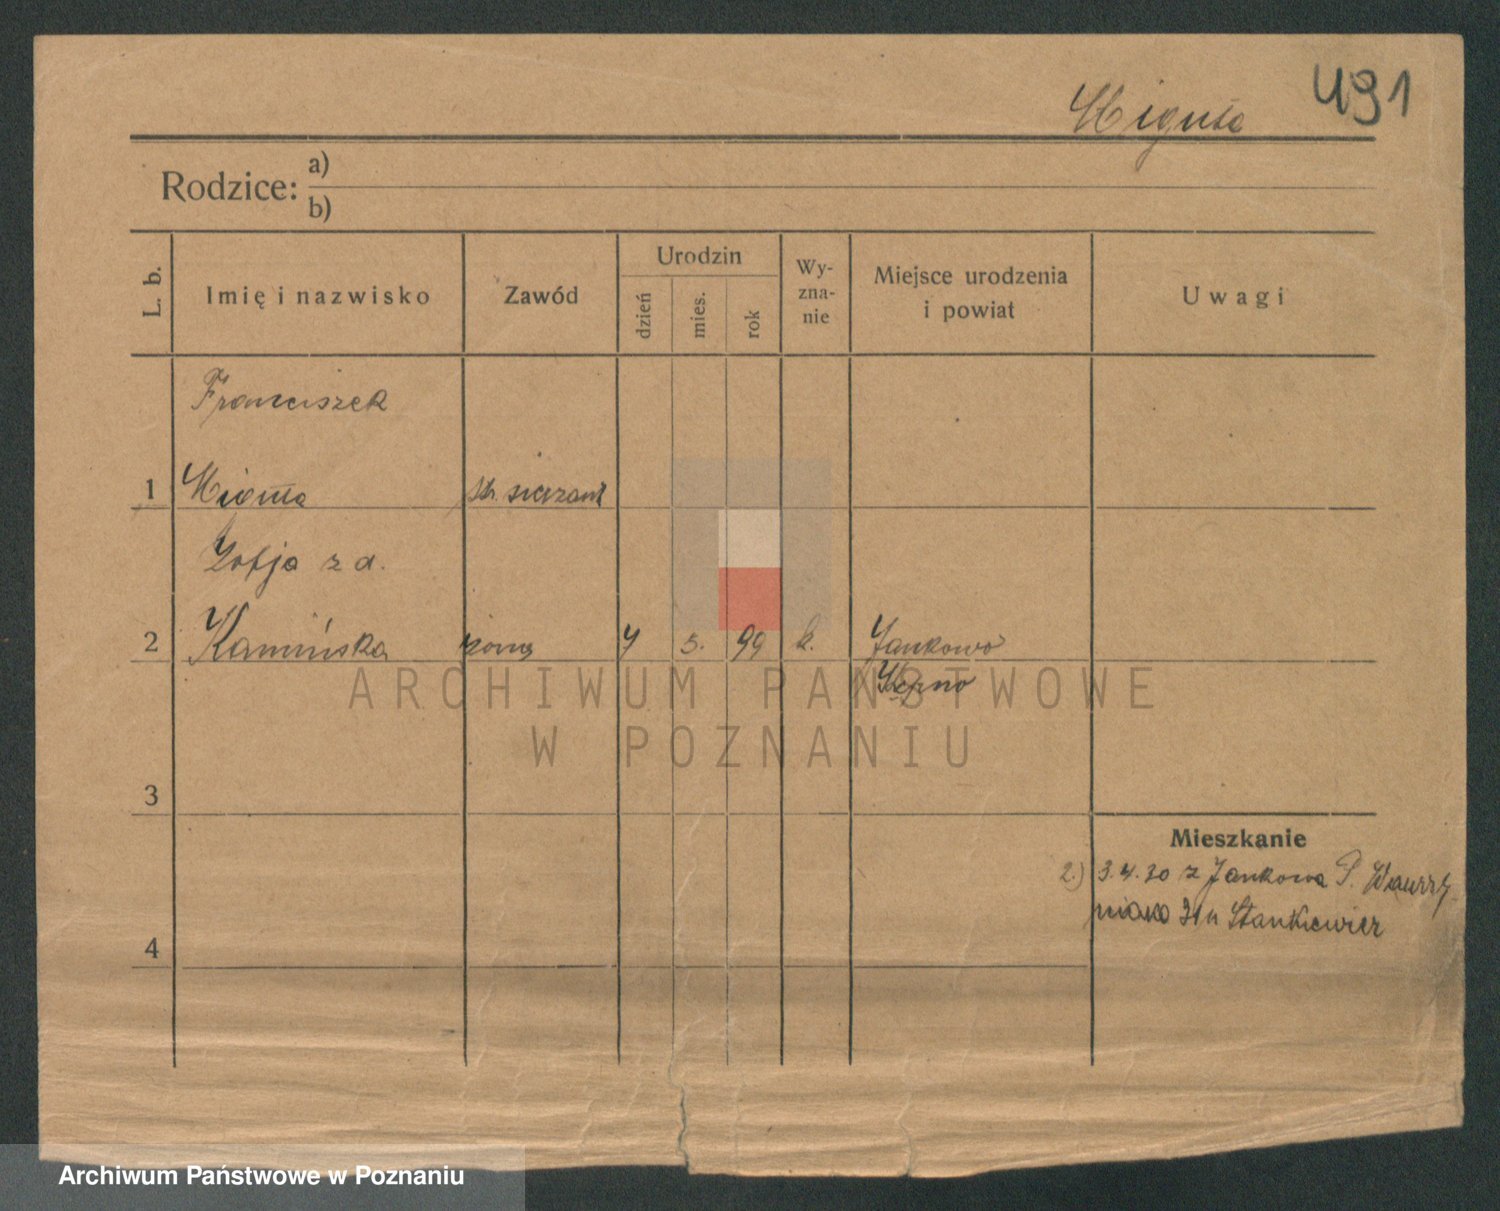 491
Miguła
Rodzice: a)
b)
L. b.
Imię i nazwisko
Zawód
Urodzin
dzień
mies.
rok
Wy-
zna-
nie
Miejsce urodzenia
i powiat
Uwagi
Franciszek
1 st. sierżant
Zofja z d.
2 Kamińska żona 7 5. 99 k. Jankowo
Kępno
ARCHIWUM PAŃSTWOWE
W POZNANIU
3
Mieszkanie
2.) 3.4.30 z Jankowa P. Wawrzy
niaka 31 u Stankiewicz
4
Archiwum Państwowe w Poznaniu